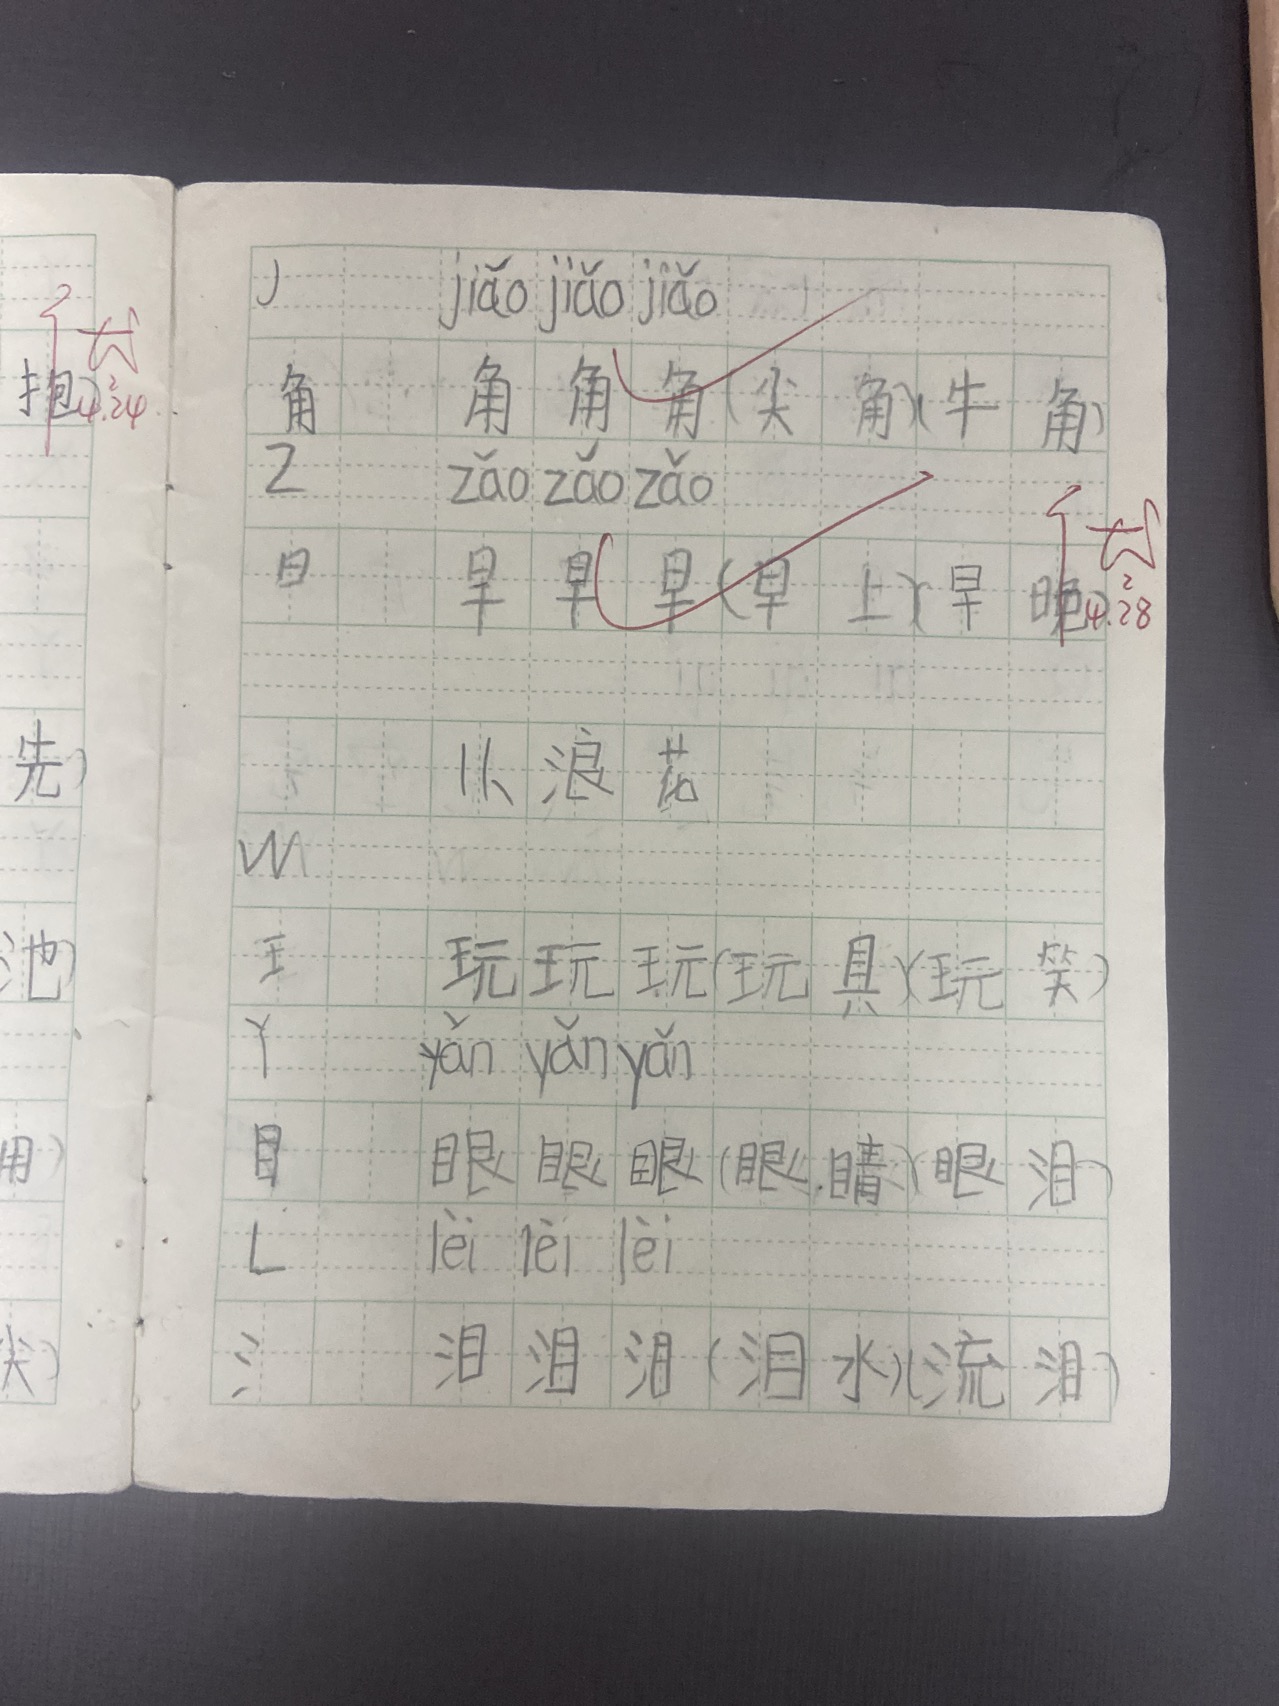 J jiǎo jiǎo jiǎo
角 角 角 角 (尖 角) (牛 角)
Z zǎo zǎo zǎo
日 早 早 早 (早 上) (早 晚)
4.28
小 浪 花
W
王 玩 玩 玩 (玩 具) (玩 笑)
Y yǎn yǎn yǎn
目 眼 眼 眼 (眼 睛) (眼 泪)
L lèi lèi lèi
氵 泪 泪 泪 (泪 水) (流 泪)
抱)
4.24
先)
池)
用)
尖)